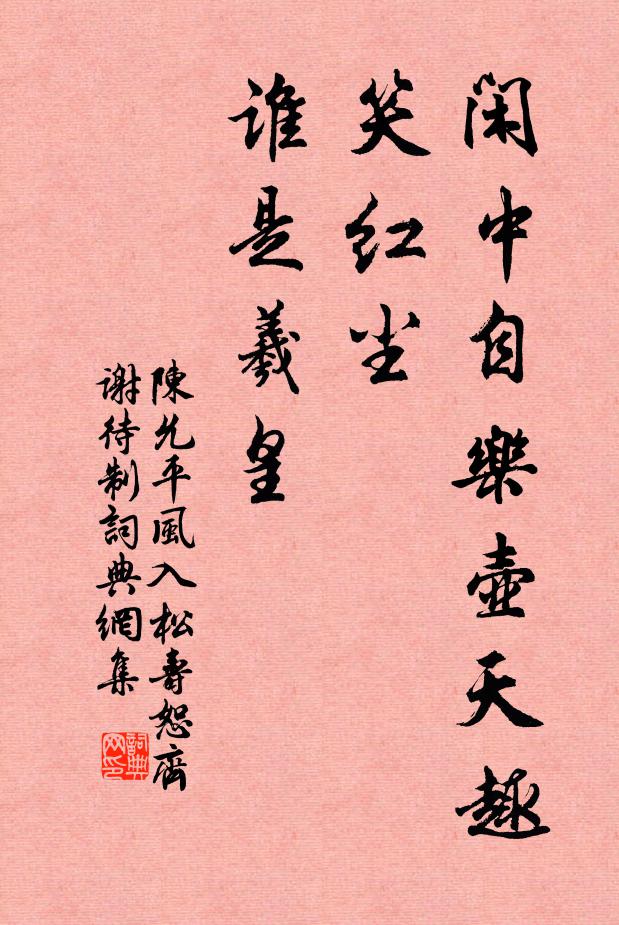 閑中自樂壺天趣
笑紅塵
誰是羲皇
陳允平風入松壽恕齋
謝待制詞典網集
詞典
网印